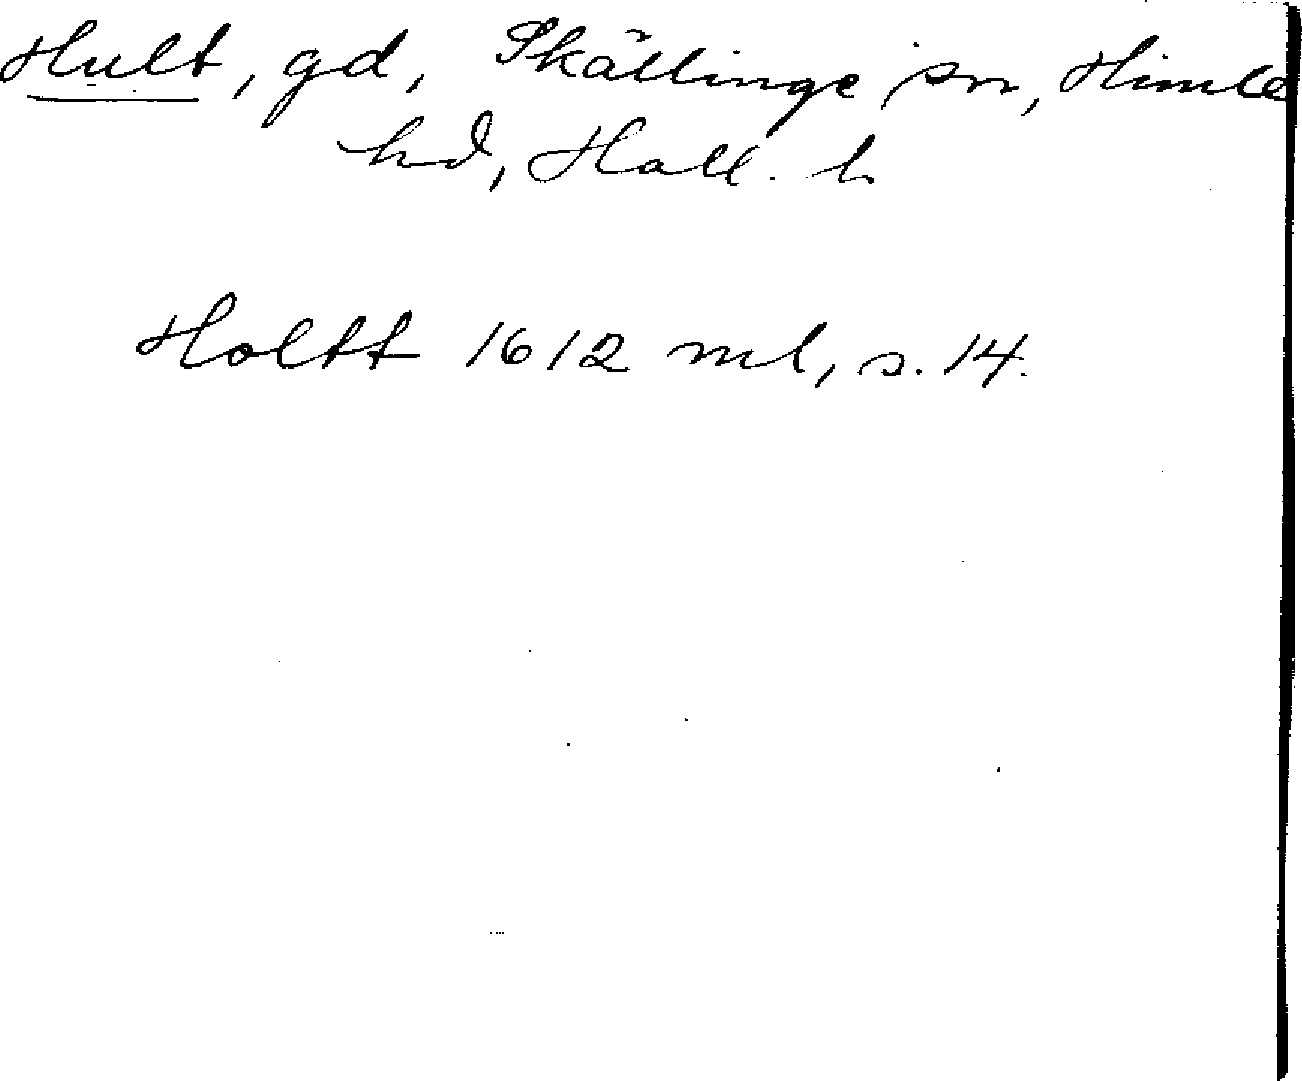 Hult, gd, Skällinge sn, Himle
hd, Hall. l.
Holtt 1612 ml, s. 14.